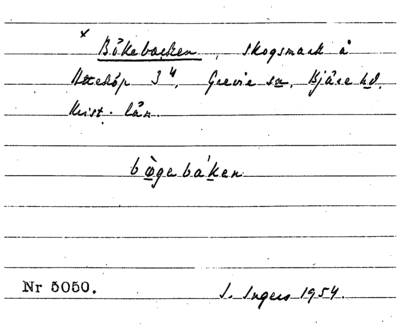 x
Bökebacken, skogsmark å
3⁴, Grevie sn, Bjäre hd.
Krist. län.
bø̀geba´ken
Nr 5050.
I. Ingers 1954.